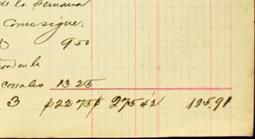 de la Semana
Comosigue.
9 50
corrales 13 25
3 $22 75 $ 275 42 125.91